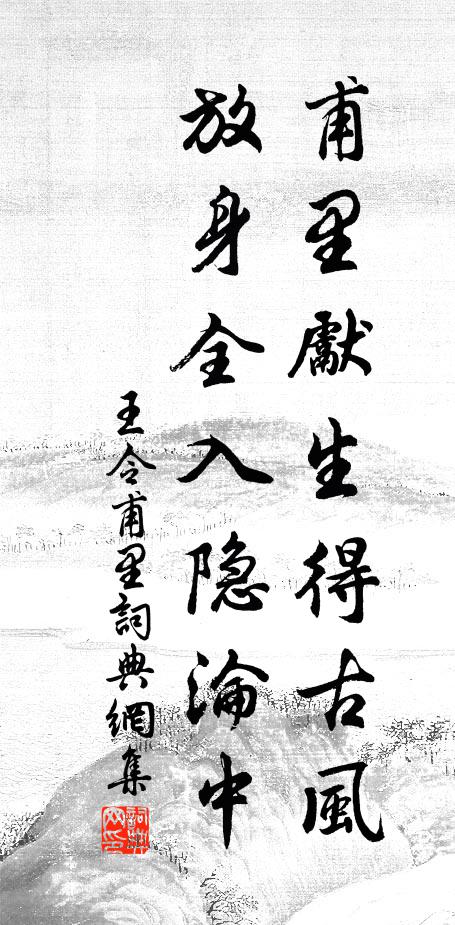 甫里獻生得古風
放身全入隐淪中
王令甫里詞典網集